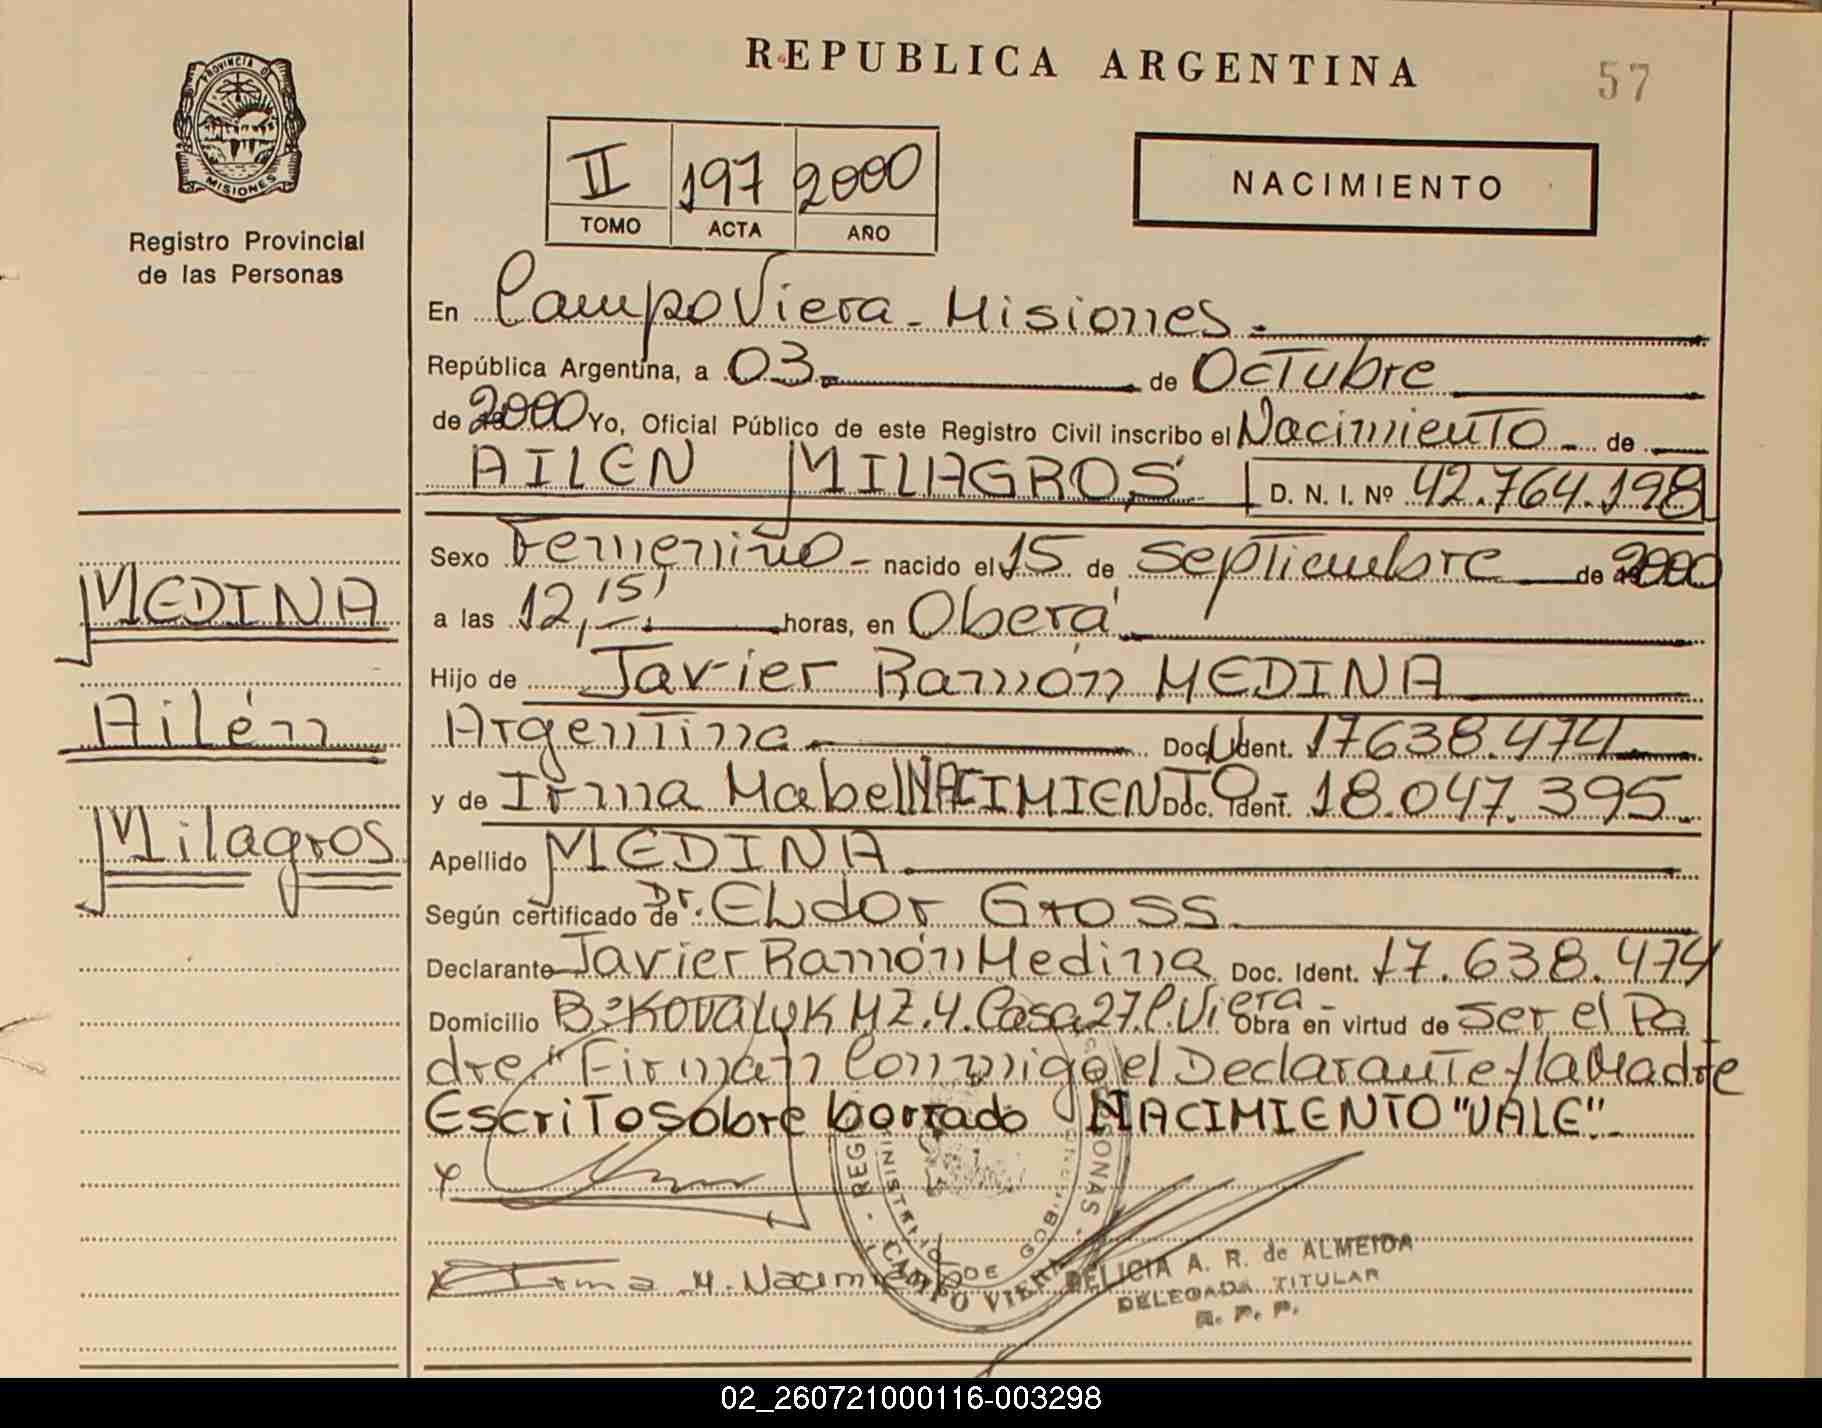 REPUBLICA ARGENTINA
57
PROVINCIA DE
MISIONES
Registro Provincial
de las Personas
II 197 2000
TOMO ACTA AÑO
NACIMIENTO
En Campo Viera - Misiones.-
República Argentina, a 03.- de Octubre
de 2000 Yo, Oficial Público de este Registro Civil inscribo el Nacimiento - de
AILEN MILAGROS D. N. I. Nº 42.764.198
Sexo Femenino - nacido el 15 de Septiembre de 2000
a las 12,15'.- horas, en Oberá
Hijo de Javier Ramón MEDINA
Argentina Doc. Ident. 17638.474
y de Irma Mabel NACIMIENTO - Doc. Ident. 18.047.395
Apellido MEDINA
Según certificado de Dr. Elidor Gross
Declarante Javier Ramón Medina Doc. Ident. 17.638.474
Domicilio Bº KOVALUK MZ.4. Casa 27. C. Viera - Obra en virtud de ser el Pa
dre" Firman Conmigo el Declarante y la Madre
Escrito sobre borrado NACIMIENTO "VALE"
MEDINA
Ailén
Milagros
Irma M. Nacimiento
CAMPO VIERA
DELICIA A. R. de ALMEIDA
DELEGADA TITULAR
R. P. P.
02_260721000116-003298